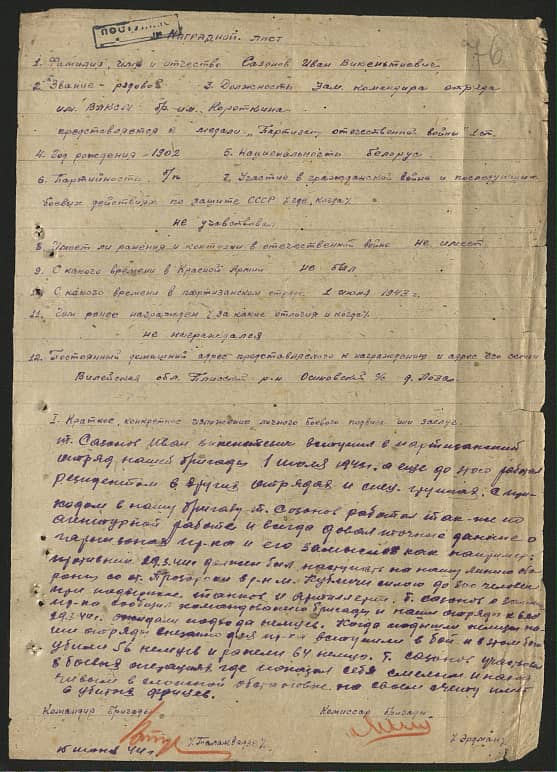 76
НАГРАДНОЙ ЛИСТ
1. Фамилия, имя и отчество Сазонов Иван Викентьевич
2. Звание - рядовой 3. Должность Зам. командира отряда
им. ВЛКСМ бр. им. Короткина
представляется к медали "Партизану отечественной войны" I ст.
4. Год рождения - 1902 5. Национальность белорус.
6. Партийность б/п 7. Участие в гражданской войне и последующих
боевых действиях по защите СССР /где, когда/
не участвовал
8. Имеет ли ранения и контузии в отечественной войне не имеет
9. С какого времени в Красной Армии не был
10. С какого времени в партизанском отряде 1 июня 1943 г.
11. Чем ранее награжден /за какие отличия и когда/
не награждался
12. Постоянный домашний адрес представляемого к награждению и адрес его семьи
Вилейская обл. Плисский р-н Осиновский с/с д.
I. Краткое, конкретное изложение личного боевого подвига или заслуг.
т. Сазонов Иван Викентьевич вступил в партизанский
отряд нашей бригады 1 июня 1943г. а еще до этого работал
резидентом в других отрядах и спец. группах. С при-
ходом в нашу бригаду т. Сазонов работал так-же по
агентурной работе и всегда давал точные данные о
гарнизонах пр-ка и его замыслах как например:
противник 29.3.44г должен был наступать на нашу линию обо-
роны со ст. в р-н м. Кубличи силою до 300 человек
при поддержке танков и артиллерии. т. Сазонов о
пр-ка сообщил командованию бригады и наши отряды к
29.3.44г. ожидали подхода немцев. Когда подошли немцы на-
ши отряды внезапно для пр-ка вступили в бой и в этом бою
убили 56 немцев и ранено 64 немца. т. Сазонов участвовал
в боевых операциях где показал себя смелым и
в сложной обстановке на своем счету имеет
6 убитых фрицев.
Командир бригады Комиссар бригады
/Талаквадзе/ /Эрдман/
15 июня 44г.